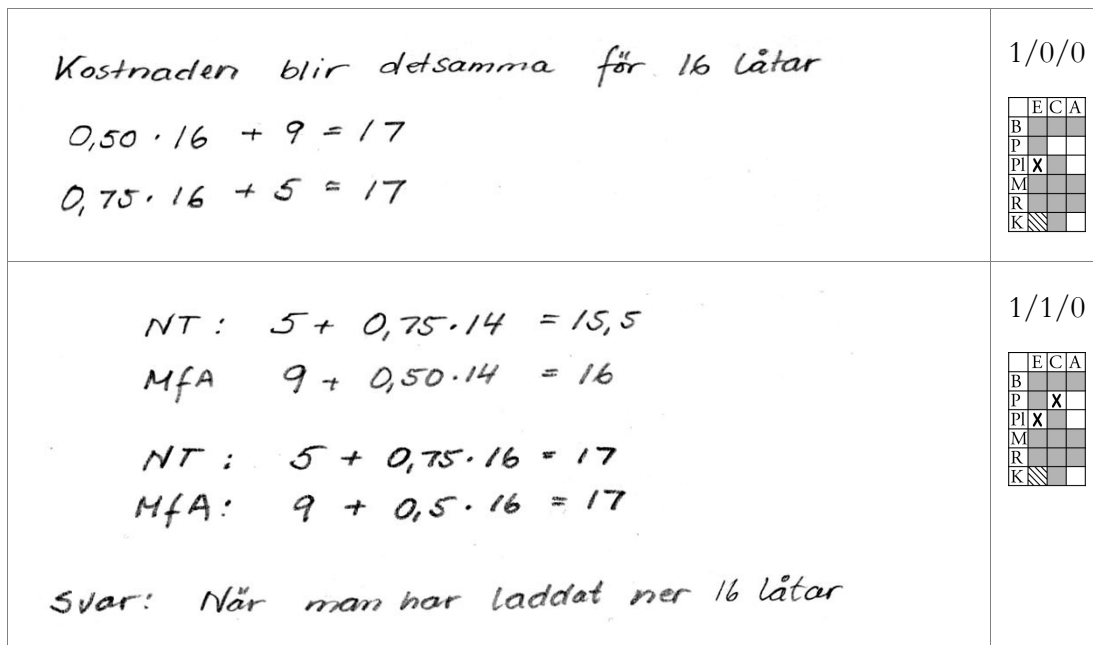 Kostnaden blir detsamma för 16 låtar
0,50 · 16 + 9 = 17
0,75 · 16 + 5 = 17
1/0/0
E C A
B
P
Pl X
M
R
K
NT: 5 + 0,75·14 = 15,5
MfA 9 + 0,50·14 = 16
NT: 5 + 0,75·16 = 17
MfA: 9 + 0,5·16 = 17
Svar: När man har laddat ner 16 låtar
1/1/0
E C A
B
P X
Pl X
M
R
K